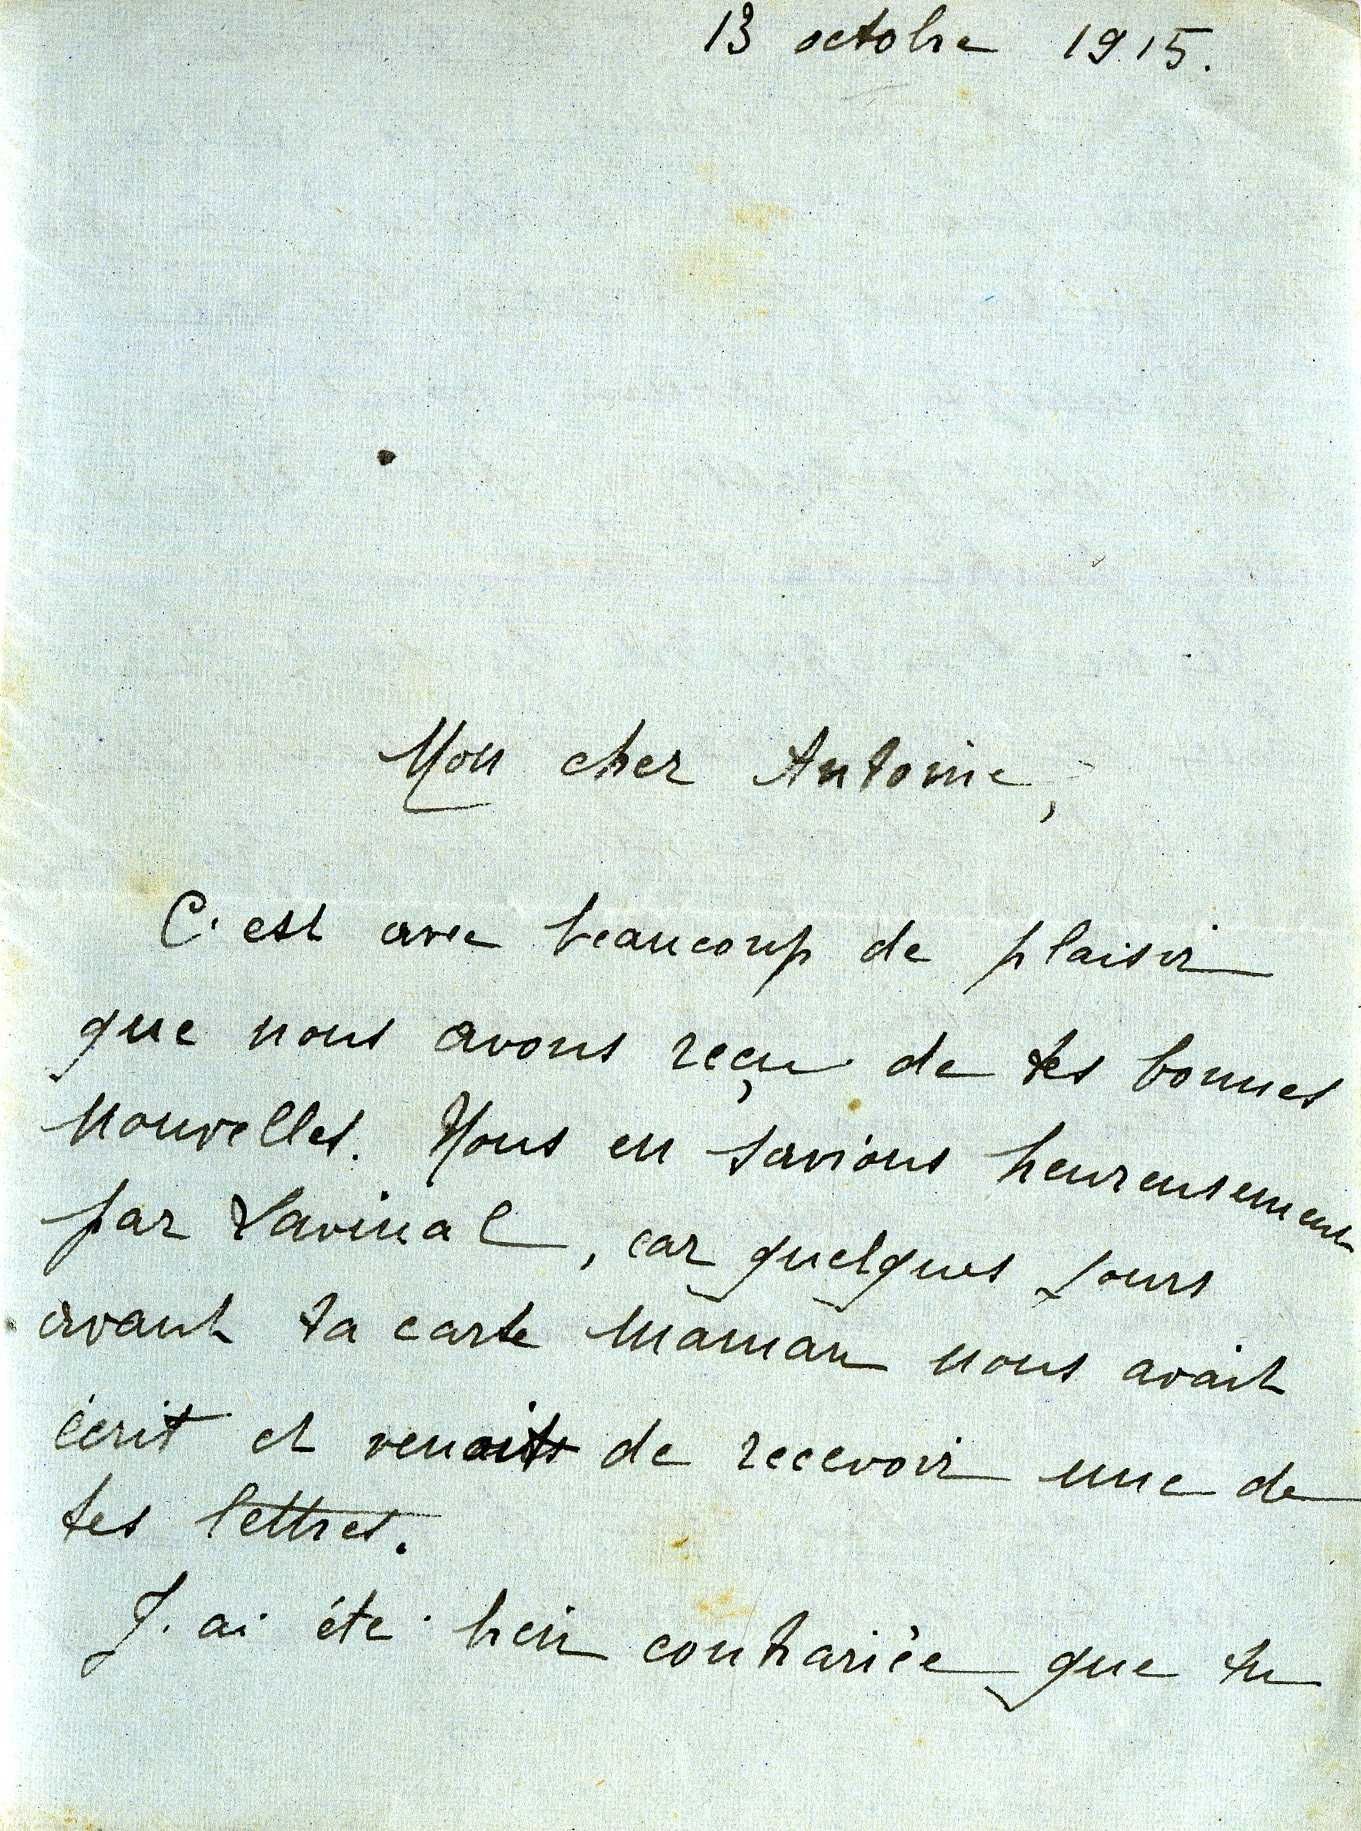 13 octobre 1915.
Mon cher Antoine,
C'est avec beaucoup de plaisir
que nous avons reçu de tes bonnes
nouvelles. Nous en savions heureusement
par Lavinal, car quelques jours
avant ta carte Maman nous avait
écrit et venait de recevoir une de
tes lettres.
J'ai été bien contrariée que tu